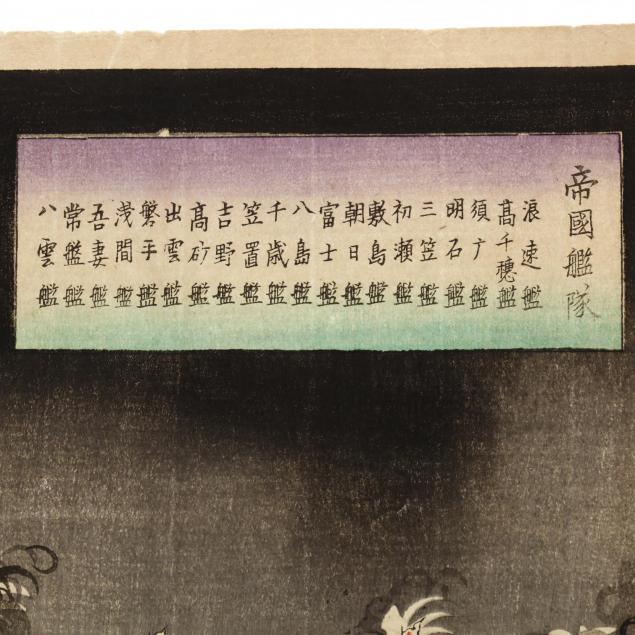 帝國艦隊
浪速艦
髙千穗艦
須广艦
明石艦
三笠艦
初瀬艦
敷島艦
朝日艦
富士艦
八島艦
千歳艦
笠置艦
吉野艦
髙砂艦
出雲艦
磐手艦
浅間艦
吾妻艦
常盤艦
八雲艦